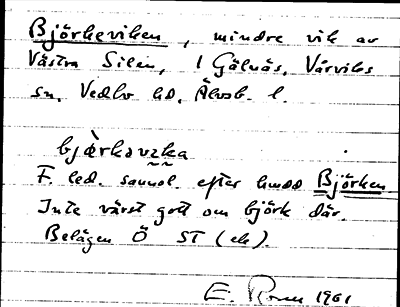 Björkeviken, mindre vik av
Västra Silen, 1 Gälnäs, Vårviks
sn, Vedbo hd, Älvsb. l.
bjærkavika
F. led. sannol. efter hmdd Björken
Inte värst gott om björk där.
Belägen Ö ST (ek).
E. 1961